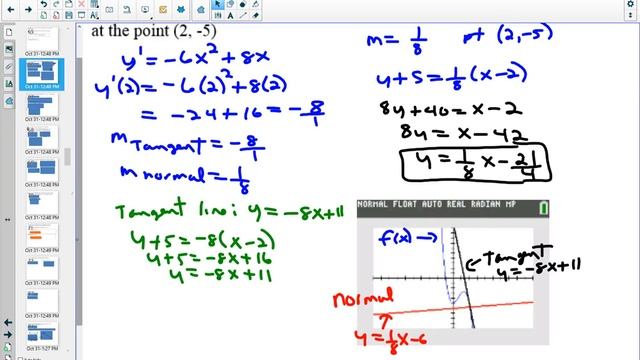 at the point (2, -5)
y' = -6x² + 8x
y'(2) = -6(2)² + 8(2)
= -24 + 16 = -8/1
m Tangent = -8/1
m normal = 1/8
Tangent line: y = -8x+11
y+5 = -8(x-2)
y+5 = -8x+16
y = -8x+11
m = 1/8 pt (2,-5)
y+5 = 1/8 (x-2)
8y+40 = x-2
8y = x-42
y = 1/8 x - 21/4
NORMAL FLOAT AUTO REAL RADIAN MP
f(x) →
Tangent
y = -8x+11
normal
y = 1/8 x-6
Oct 31-12:48 PM
Oct 31-12:48 PM
Oct 31-12:48 PM
Oct 31-12:48 PM
Oct 31-12:49 PM
Oct 31-12:49 PM
Oct 31-1:27 PM